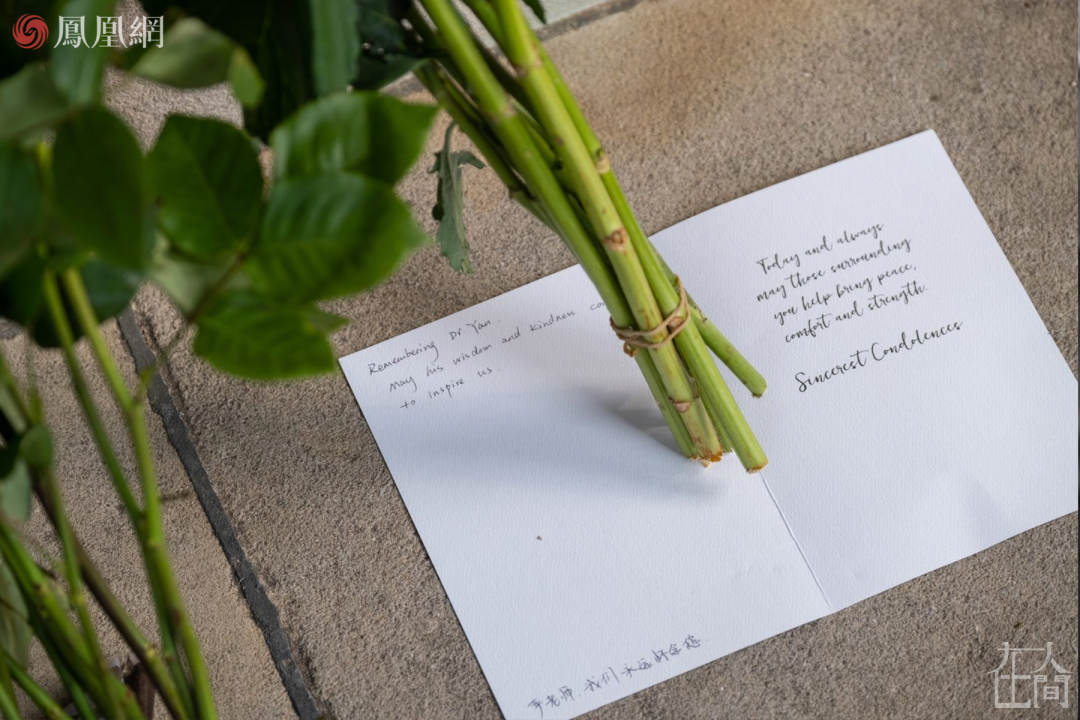 鳳凰網
Remembering Dr Yan.
May his wisdom and kindness co
to inspire us.
Today and always
may those surrounding
you help bring peace,
comfort and strength.
Sincerest Condolences
老师，我们永远怀念您.
在人間